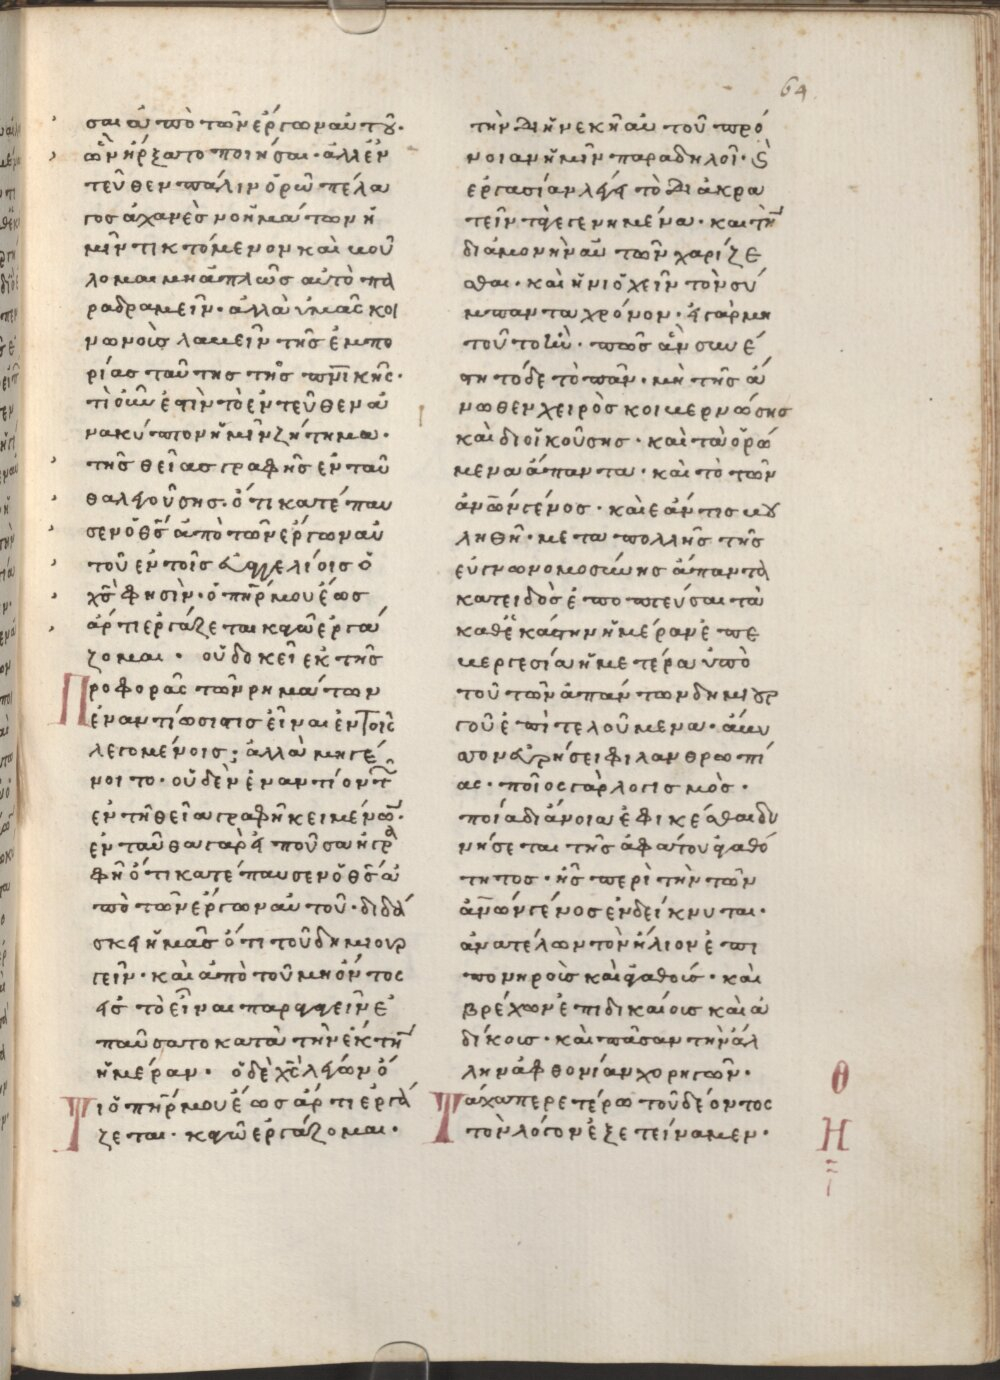 64
σαι ἀπὸ τῶν ἔργων αὐτοῦ·
ὧν ἤρξατο ποιῆσαι· ἀλλ' ἐν
τεῦθεν πάλιν ὁρῶ πέλα
γος ἀχανὲς νοημάτων ἡ
μῖν τικτόμενον καὶ βού
λομαι μὴ ἁπλῶς αὐτὸ πα
ραδραμεῖν· ἀλλὰ ὑμᾶς κοι
νωνοὺς λαβεῖν τῆς ἐμπο
ρίας ταύτης τῆς πνικῆς·
τί οὖν ἐστὶν τὸ ἐντεῦθεν ἀ
νακύπτον ἡμῖν ζήτημα·
τῆς θείας γραφῆς ἐνταῦ
θα λεγούσης· ὅτι κατέπαυ
σεν ὁ θς ἀπὸ τῶν ἔργων αὐ
τοῦ ἐν τοῖς εὐαγγελίοις ὁ
χς φησὶν· ὁ πηρ μου ἕως
ἄρτι ἐργάζεται κἀγὼ ἐργά
ζομαι· οὐ δοκεῖ ἐκ τῆς
Προφορᾶς τῶν ρημάτων
ἐναντίωσίς τις εἶναι ἐν τοῖς
λεγομένοις; ἀλλὰ μὴ γέ
νοιτο· οὐδὲν ἐναντίον τῶν
ἐν τῆ θεία γραφῆ κειμένων·
ἐνταῦθα γὰρ εἰποῦσα ἡ γρα
φὴ ὅτι κατέπαυσεν ὁ θς ἀ
πὸ τῶν ἔργων αὐτοῦ· διδά
σκει ἡμᾶς ὅτι τοῦ δημιουρ
γεῖν· καὶ ἀπὸ τοῦ μὴ ὄντος
εἰς τὸ εἶναι παραγαγεῖν ἐ
παύσατο κατὰ τὴν ἕκτην
ἡμέραν· ὁ δὲ χς λέγων ὅ
τι ὁ πηρ μου ἕως ἄρτι ἐργά
ζεται· κἀγὼ ἐργάζομαι·
τὴν διηνεκῆ αὐτοῦ πρό
νοιαν ἡμῖν παραδηλοῖ· καὶ
ἐργασίαν λέγει τὸ διακρα
τεῖν τὰ γεγενημένα· καὶ τὴν
διαμονὴν αὐτῶν χαρίζε
σθαι· καὶ ἡνιοχεῖν τὸν σύ
μπαντα χρόνον· εἰ γὰρ μὴ
τοῦτο ἦν· πῶς ἂν συνέ
στη τόδε τὸ πᾶν· μὴ τῆς ἄ
νωθεν χειρὸς κοιβερνώσης
καὶ διοικούσης· καὶ τὰ ὁρώ
μενα ἅπαντα· καὶ τὸ τῶν
ἀνῶν γένος· καὶ ἐάν τις βου
ληθῆ· μετὰ πολλῆς τῆς
εὐγνωνομοσύνης ἅπαντα
κατειδὸς ἐποπτεύσαι τὰ
καθ' ἑκάστην ἡμέραν ἐπ' ε
βεργεσία ἡμετέρα ὑπὸ
τοῦ τῶν ἁπάντων δημιουρ
γοῦ ἐπιτελούμενα· ἄβυ
σσον εὑρήσει φιλανθρωπί
ας· ποῖος γὰρ λογισμός·
ποία διάνοια ἐφικέσθαι δυ
νήσεται τῆς ἀφάτου ἀγαθό
τητος· ἧς περὶ τὴν τῶν
ἀνῶν γένος ἐνδείκνυται·
ἀνατέλων τὸν ἥλιον ἐπὶ
πονηροὺς καὶ ἀγαθούς· καὶ
βρέχων ἐπὶ δικαίοις καὶ ἀ
δίκοις· καὶ πᾶσαν τὴν ἄλ
λην ἀφθονίαν χορηγῶν·
Τάχα περετέρω τοῦ δέοντος
τὸν λόγον ἐξετείναμεν·
θ
Η